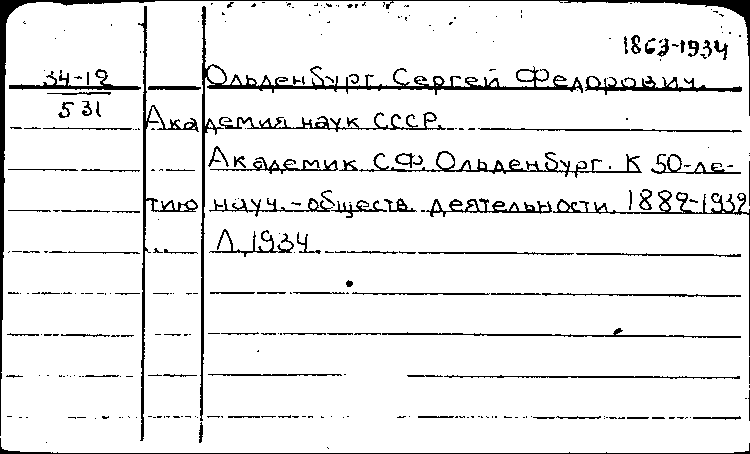 1863-1934
34-12 Ольденбург, Сергей Федорович.
531
Академия наук СССР.
Академик С.Ф. Ольденбург. К 50-ле-
тию науч.-обществ. деятельности. 1882-1932
... Л., 1934.